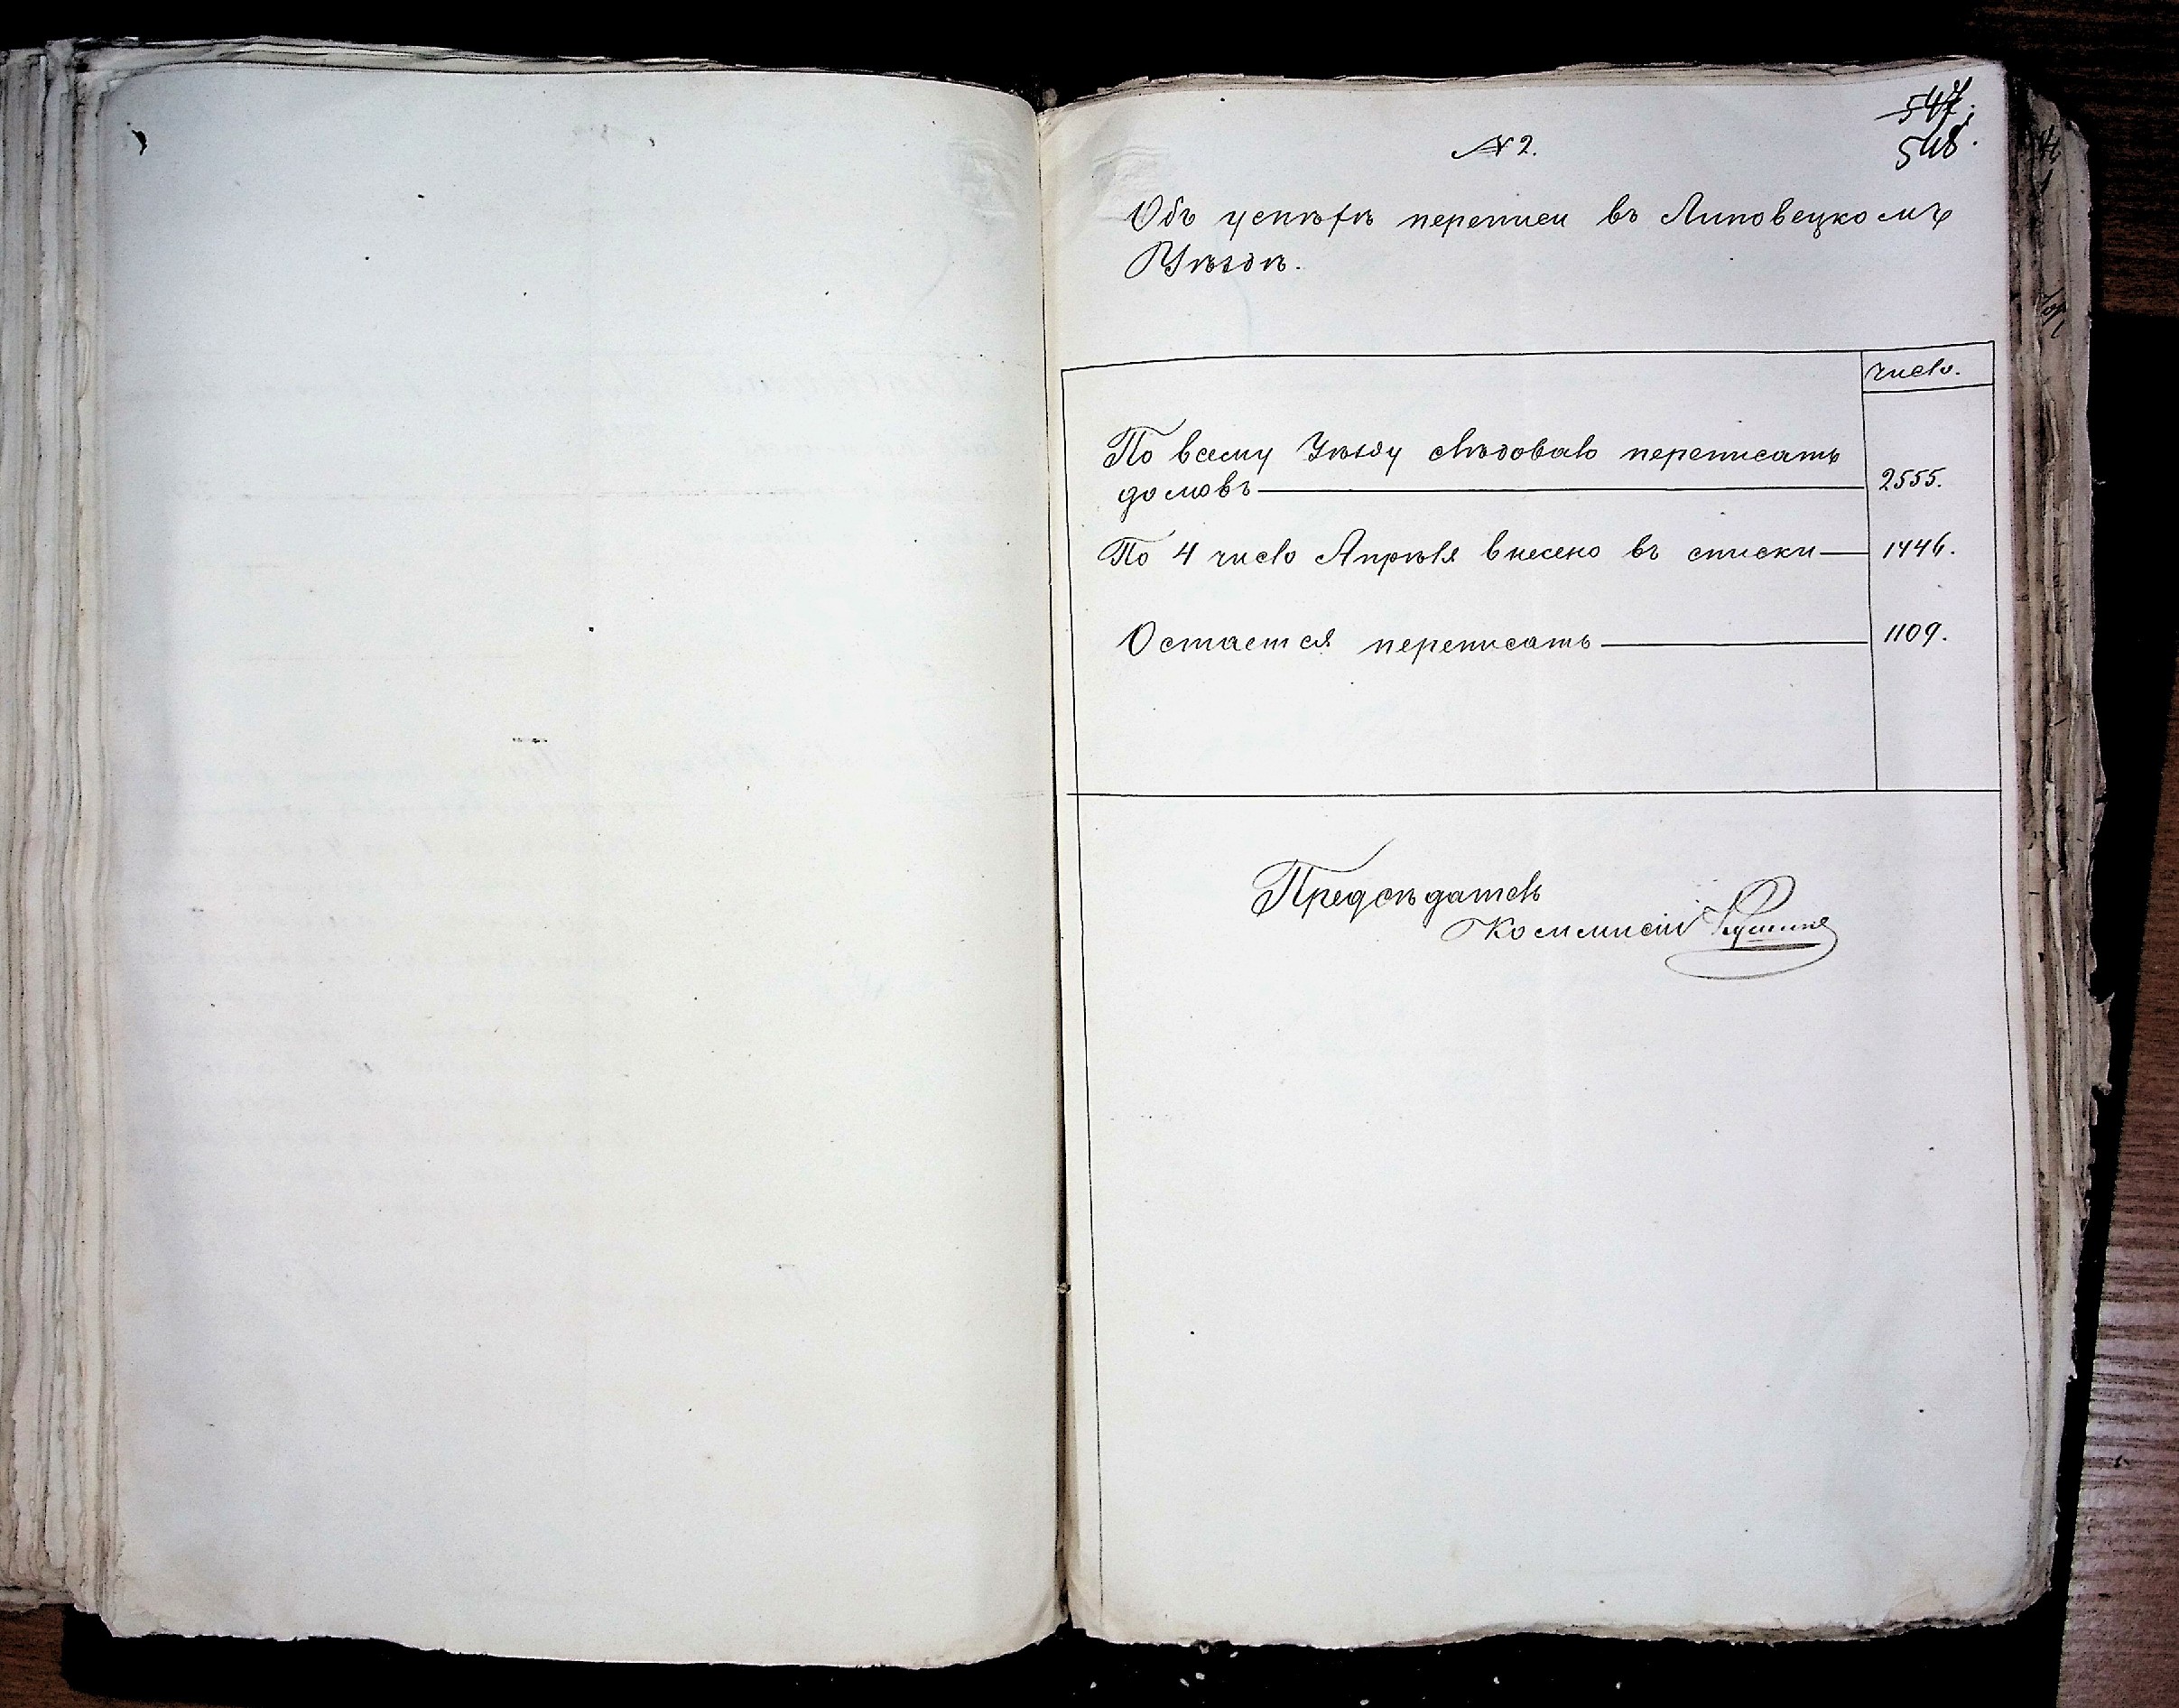 547.
548.
№ 2.
Объ успѣхѣ переписи въ Липовецкомъ
Уѣздѣ.
число.
По всему Уѣзду слѣдовало переписать
домовъ 2555.
По 4 число Апрѣля внесено въ списки 1446.
Остается переписать 1109.
Предсѣдатель
Коммисіи